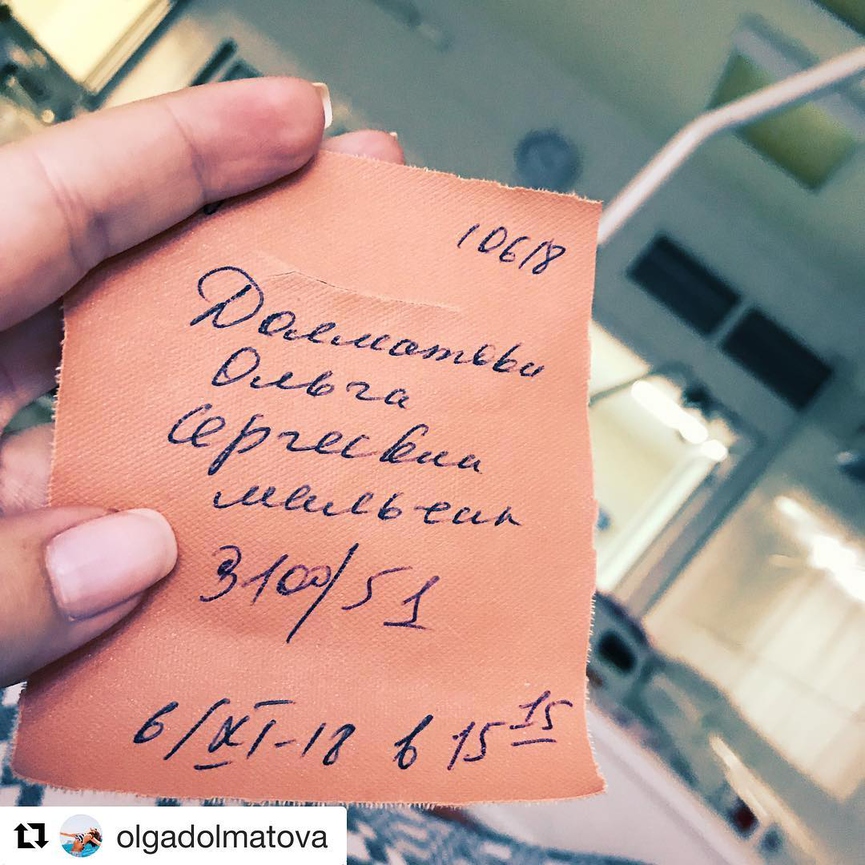 10618
Долматова
Ольга
Сергеевна
мальчик
3100/51
6/XI-18 в 15 15
olgadolmatova